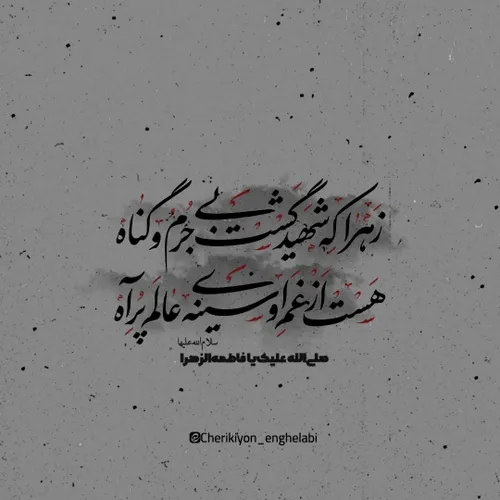 زهرا که شهید گشت بی جرم و گناه
هست از غم او سینه‌ی عالم پر آه
سلام‌الله‌علیها
صلی‌الله علیک یا فاطمه‌الزهرا
@Cherikiyon_enghelabi